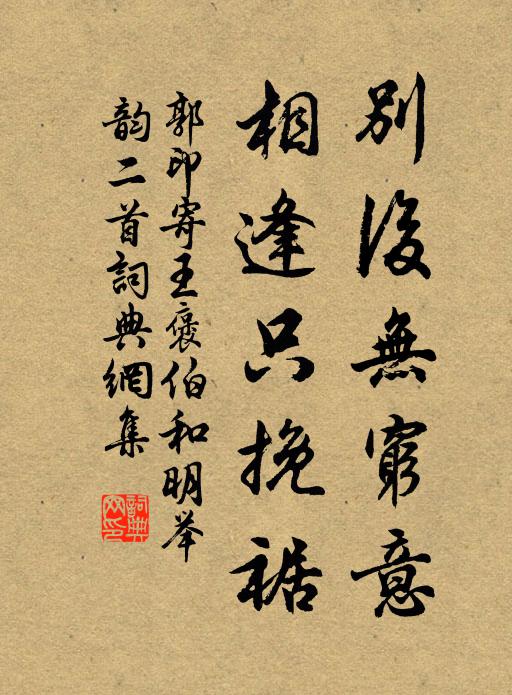 別後無窮意
相逢只挽裾
郭印寄王褒伯和明举
韵二首詞典網集
詞典
网印